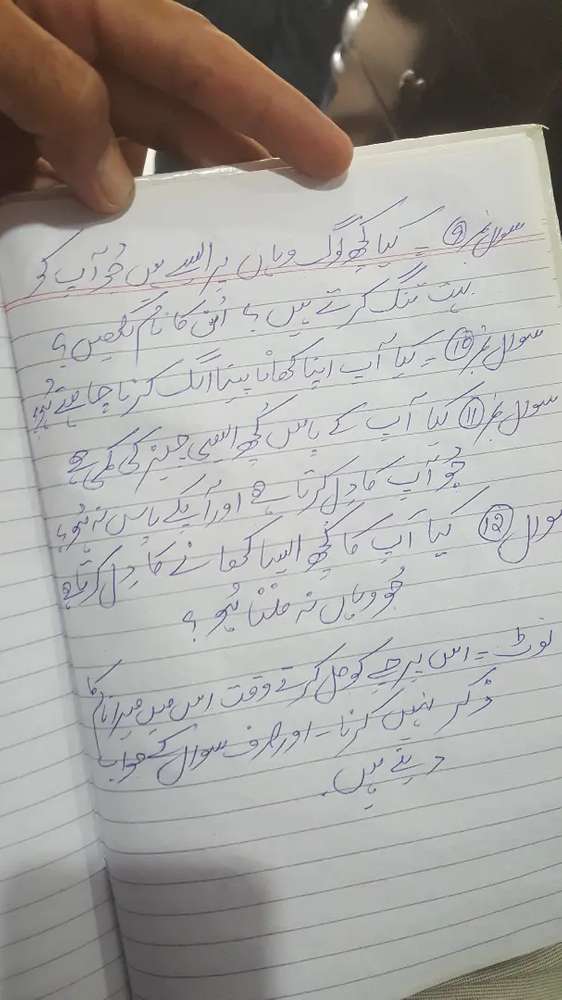 سوال نمبر ⑨ - کیا کچھ لوگ وہاں پر ایسے ہیں جو آپ کو
بہت تنگ کرتے ہیں؟ اُن کا نام لکھیں؟
سوال نمبر ⑩ - کیا آپ اپنا کھانا پینا الگ کرنا چاہتے ہیں؟
سوال نمبر ⑪ کیا آپ کے پاس کچھ ایسی چیز کی کمی ہے
جو آپ کا دِل کرتا ہے اور آپکے پاس نہ ہو؟
سوال ⑫ کیا آپ کا کچھ ایسا کھانے کا دِل کرتا ہے
جو وہاں نہ ملتا ہو؟
نوٹ = اس پرچے کو حل کرتے وقت اس میں میرا نام کا
ذکر نہیں کرنا - اور صرف سوال کے جواب
دینے ہیں۔